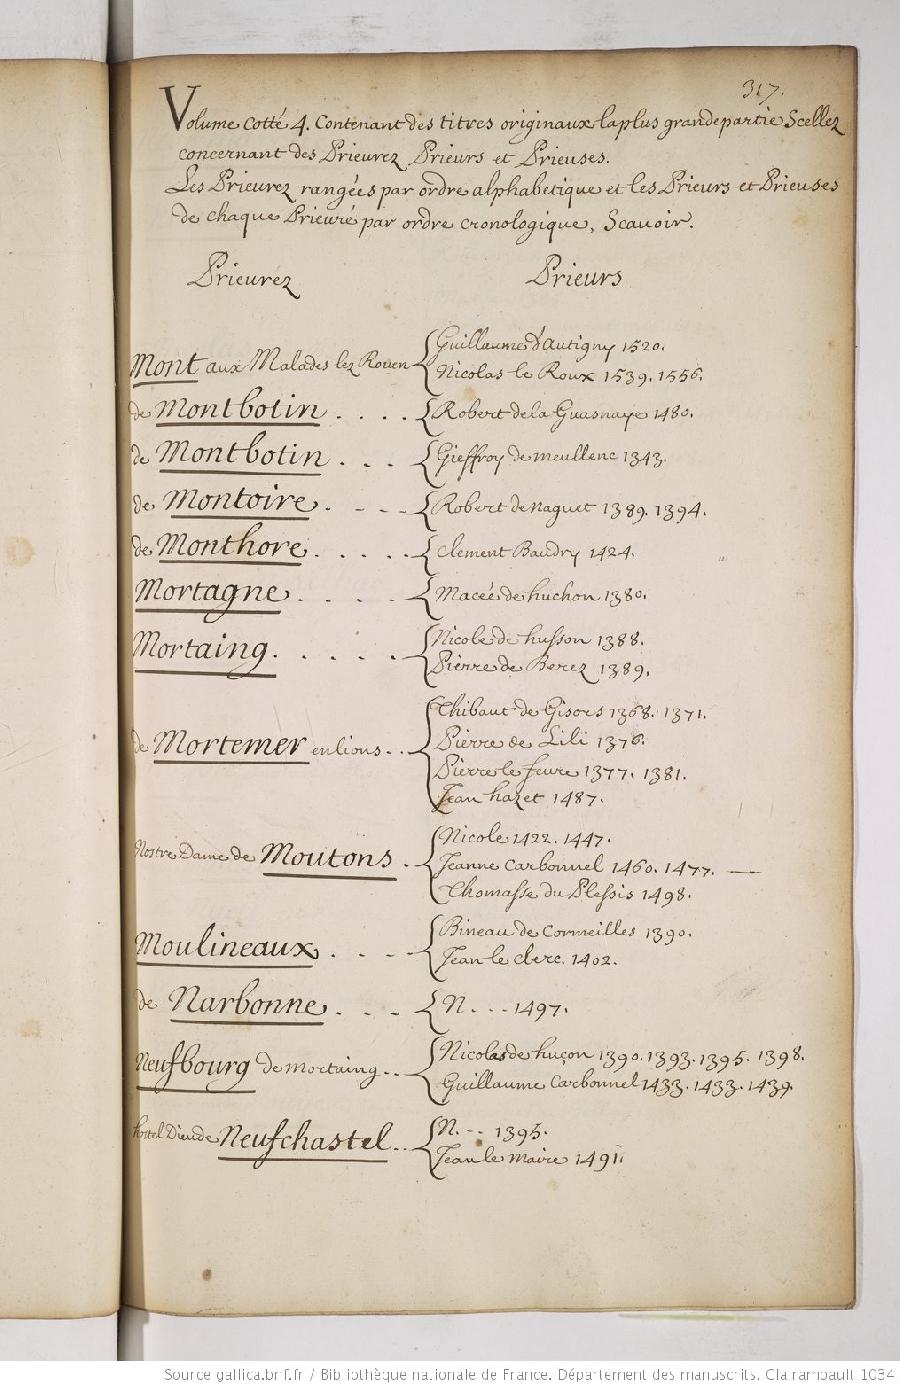 317.
Volume cotté 4. Contenant des titres originaux la plus grande partie Scellez
concernant des Prieurez, Prieurs et Prieuses.
Les Prieurez rangées par ordre alphabetique et les Prieurs et Prieuses
de chaque Prieuré par ordre cronologique, Scauoir.
Prieurez Prieurs
Mont aux Malades lez Rouen
Guillaume d'autigny 1520.
Nicolas le Roux 1539. 1556.
de Montbotin . . . . Robert de la Guasnaye 1480.
de Montbotin . . . Gieffroy de meullenc 1343.
de Montoire . - - - Robert de naguet 1389. 1394.
de Monthore . . . . Clement Baudry 1424.
Mortagne . . . . Macée de huchon 1380.
Mortaing . . . . .
Nicole de husson 1388.
Pierre de Berez 1389.
de Mortemer en lions . .
Thibaut de Gisors 1368. 1371.
Pierre de Lili 1376.
Pierre le feure 1377. 1381.
Jean hazet 1487.
Nostre Dame de Moutons .
Nicole 1422. 1447.
Jeanne Carbonnel 1460. 1477.
Thomasse du Plessis 1498.
Moulineaux . . . .
Bineau de Cormeilles 1390.
Jean le clerc. 1402.
de Narbonne . - - . N. . . . 1497.
Neufbourg de mortaing . .
Nicolas de huçon 1390. 1393. 1395. 1398.
Guillaume Carbonnel 1433. 1433. 1439.
hostel Dieu de Neufchastel . .
N. - - 1395.
Jean le maire 1491.
Source gallica.bnf.fr / Bibliothèque nationale de France. Département des manuscrits. Clairambault 1034